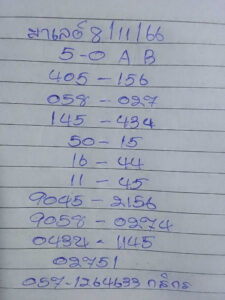 มาเลย์ 8/11/66
5-0 A B
405 - 156
058 - 027
145 - 434
50 - 15
16 - 44
11 - 45
9045 - 2156
9058 - 0274
0434 - 1145
02751
057-1264633